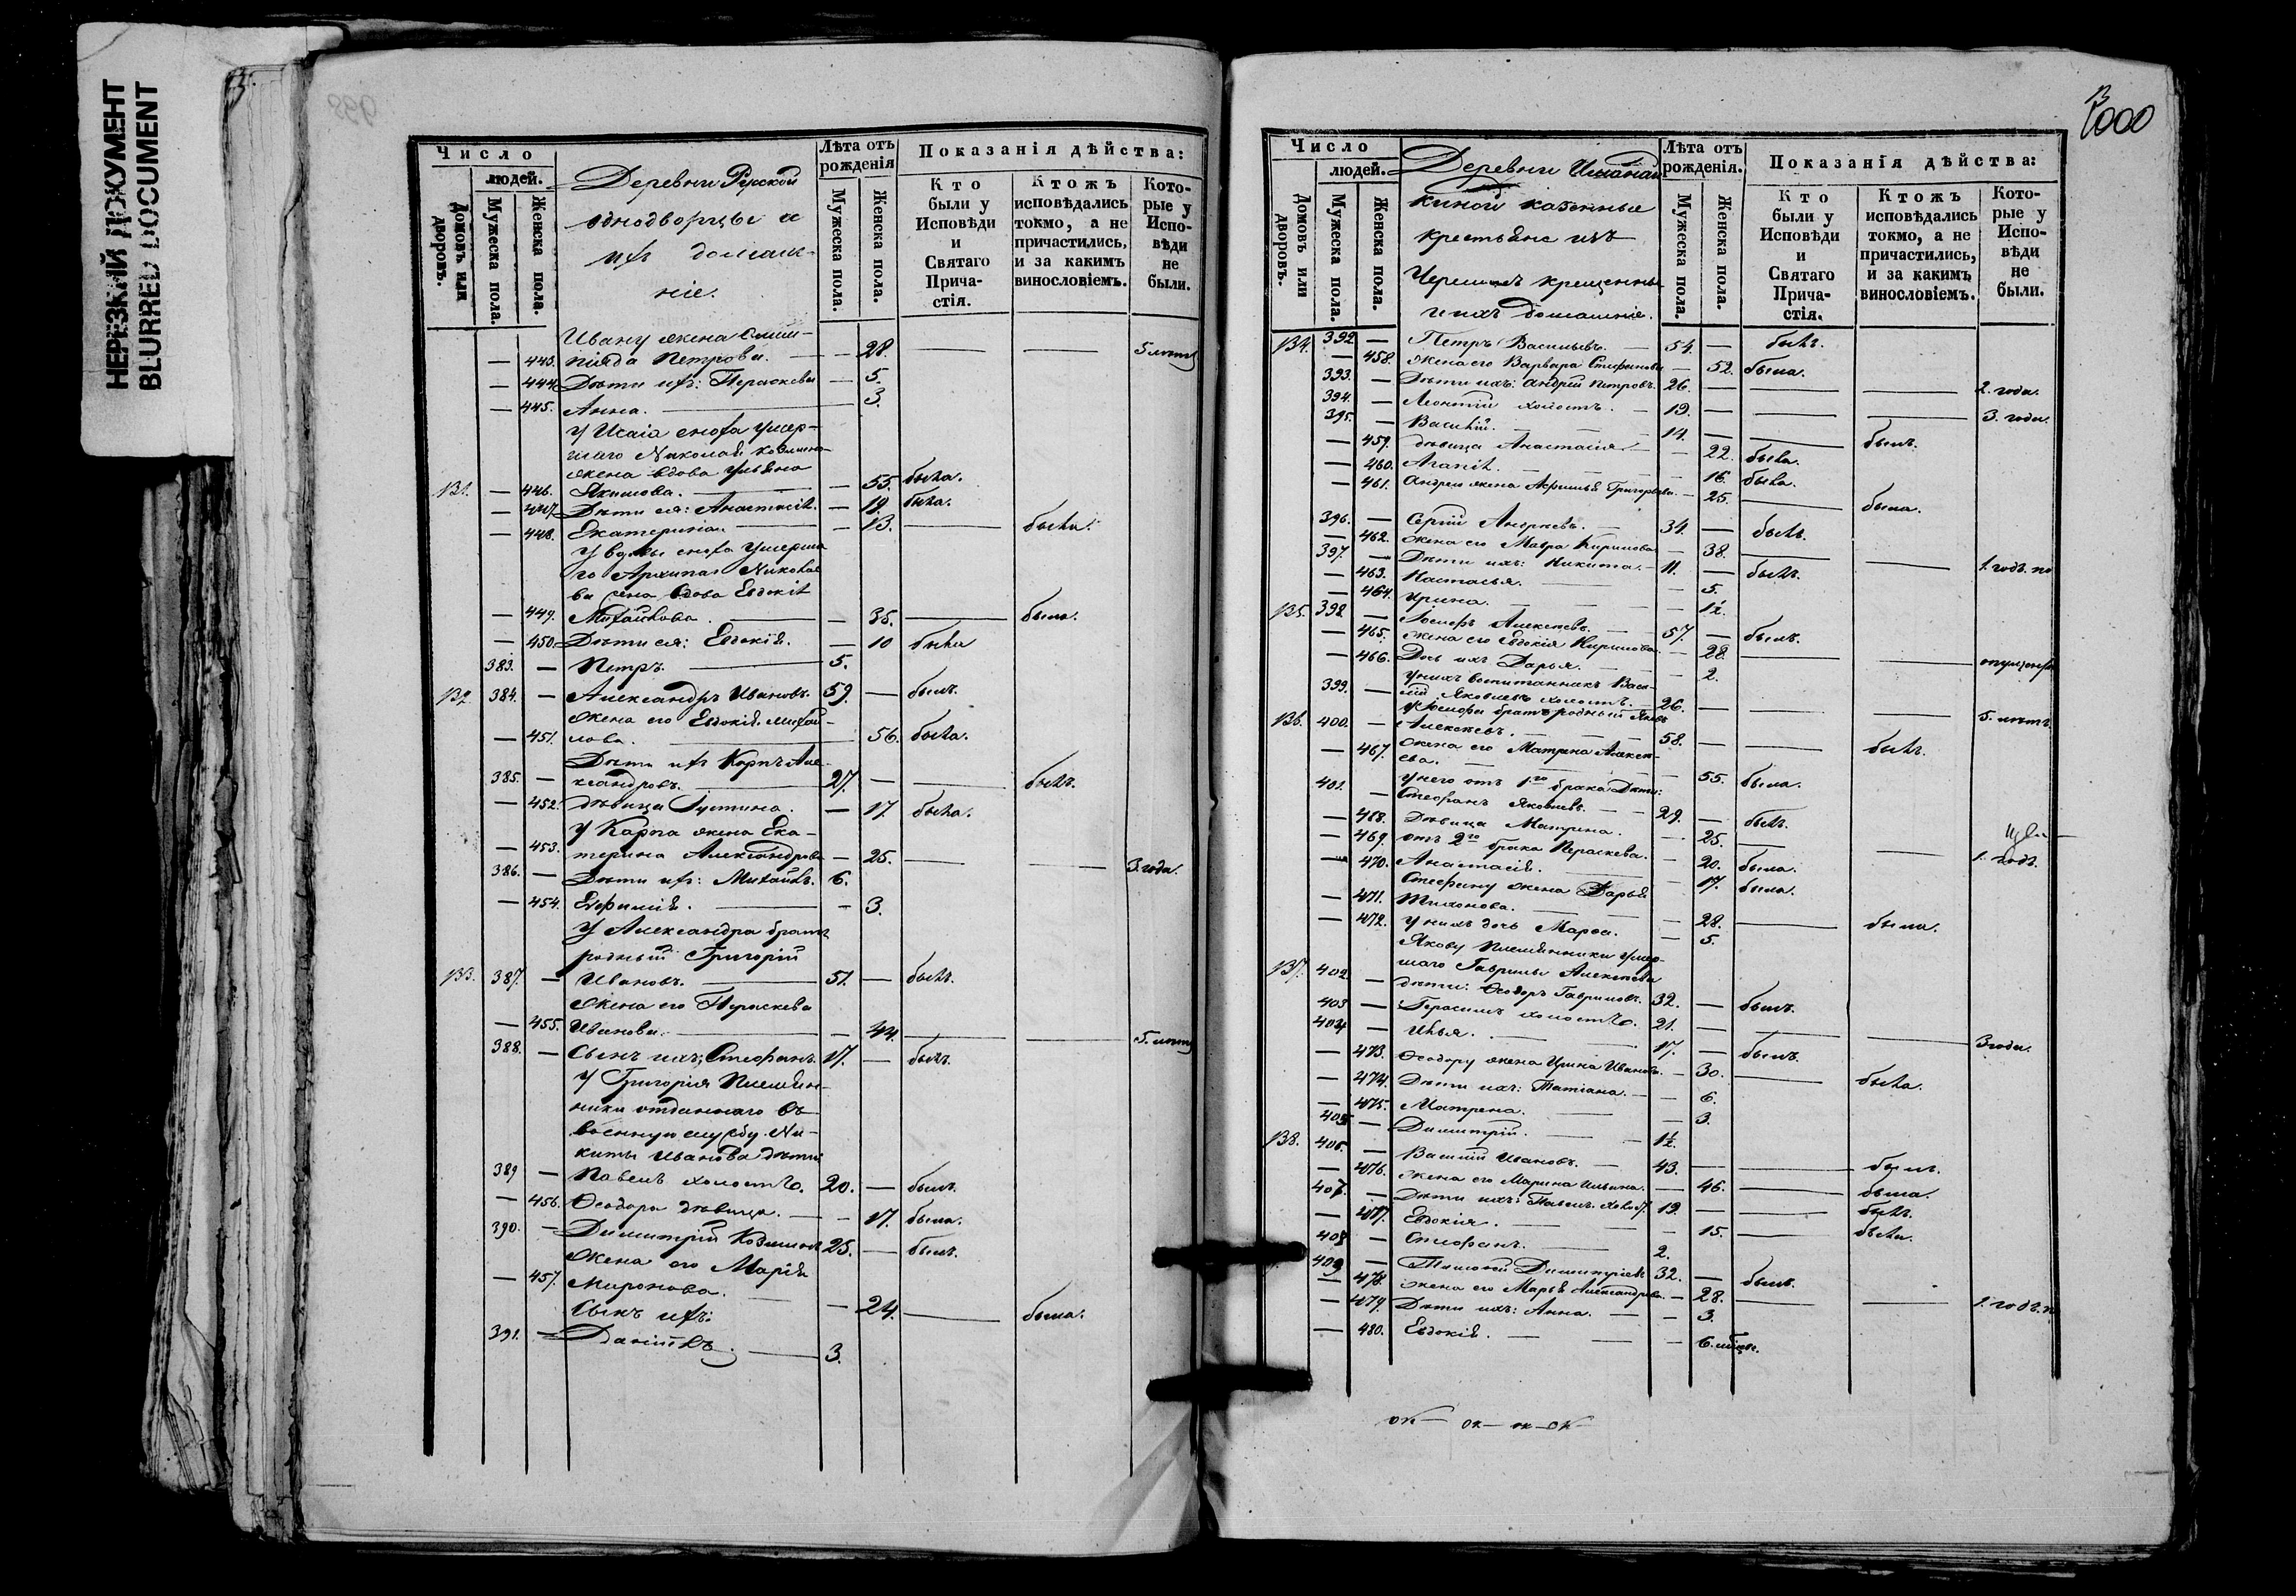 НЕРЕЗКИЙ ДОКУМЕНТ
BLURRED DOCUMENT
998
Число
людей.
Домовъ или дворовъ.
Мужеска пола.
Женска пола.
Деревни Русской
однодворцы и
ихъ домаш-
ніе.
Лѣта отъ рожденія
Мужеска пола.
Женска пола.
Показанія дѣйства:
Кто были у Исповѣди и Святаго Прича-стія.
Ктожъ исповѣдались токмо, а не причастились, и за какимъ винословіемъ.
Кото-рые у Испо-вѣди не были.
Ивану жена
— 443. Петрова. — — 28. — — 5 лѣтъ
— 444. Дѣти ихъ: Параскева — 5.
— 445. Анна. — 3.
У сноха умер-
шаго Николая
жена вдова Ульяна
131. — 446. Якимова. — — 55. была.
— 447. Дѣти ея: Анастасія. — 19. была.
— 448. Екатерина. — — 13. — была.
У вдовы сноха умерша
го Архипа Николае
ва жена вдова Евдокія
— 449. Михайлова. — — 35. — была.
— 450. Дѣти ея: Евдокія. — 10 была
383. — Петръ. — 5.
132. 384. — Александръ Ивановъ. 59. — былъ.
жена его Евдокія Михай-
— 451. лова. — 56. была.
Дѣти ихъ Карпъ Але-
385. — ксандровъ. — 27. — — былъ.
— 452. дѣвица Іустина. — 17. была.
У Карпа жена Ека-
— 453. терина Александрова — 25. — — 3. года.
386. — Дѣти ихъ: Михаилъ. 6.
— 454. Евфимія. — — 3.
У Александра братъ
родный Григорій
133. 387. — Ивановъ. — 51. — былъ.
Жена его Параскева
— 455. Иванова. — — 44. — — 5. лѣтъ
388. — Сынъ ихъ: Стефанъ. 17. — былъ.
У Григорія племян-
ника отданнаго въ
военную службу Ни-
киты Иванова дѣти
389 — Павелъ холостъ. 20. — былъ.
— 456. Ѳеодора дѣвица. — — 17. была.
390. — Димитрій 25. — былъ.
Жена его Марія
— 457. Миронова. — — 24. — была.
Сынъ ихъ:
391. — Даніилъ. — 3.
1000
Число
людей.
Домовъ или дворовъ.
Мужеска пола.
Женска пола.
Деревни
киной казенные
крестьяне изъ
Черемисъ крещенны
и ихъ домашніе.
Лѣта отъ рожденія.
Мужеска пола.
Женска пола.
Показанія дѣйства:
Кто были у Исповѣди и Святаго Прича-стія.
Ктожъ исповѣдались токмо, а не причастились, и за какимъ винословіемъ.
Кото-рые у Испо-вѣди не были.
134. 392 — Петръ Васильевъ. — 54. — былъ.
— 458. жена его Варвара Стефанова — 52. была.
393. — Дѣти ихъ: Андрей Петровъ. 26. — — — 2. года.
394. — Леонтій холостъ. — 19. — — — 3. года.
395. — Василій. — 14. — — былъ.
— 459. дѣвица Анастасія — — 22. была.
— 460. — — 16. была.
— 461. Андрея жена Григорьева. — 25. — была.
396. — Сергій Андреевъ. — 34. — былъ.
— 462. жена его Мавра Кирилова — 38. — — 1. годъ
397. — Дѣти ихъ: Никита. — 11. — былъ.
— 463. Настасья. — — 5.
— 464. Ирина. — — 1½.
135. 398 — Іосифъ Алексѣевъ. — 57. — былъ.
— 465. жена его Евдокія Кирилова. — 28. — —
— 466. Дочь ихъ Дарья. — — 2.
У нихъ воспитанникъ Васи-
399. — лій Яковлевъ холостъ. — 26. — — — 5. лѣтъ
У Іосифа братъ родный Яковъ
136. 400. — Алексѣевъ. — 58. — — былъ.
жена его Матрона Алексѣ-
— 467. ева. — — 55. была.
У него отъ 1го брака Дѣти:
401. — Стефанъ Яковлевъ. — 29. — былъ.
— 468. Дѣвица Матрена. — — 25. —
— 469. отъ 2го брака Параскева. — 20. была. — 1. годъ
— 470. Анастасія. — — 17. была.
Стефану жена Дарья
— 471. Тихонова. — — 28. — была.
— 472. У нихъ дочь Марѳа. — 5.
Якову племянники умер-
шаго Гаврилы Алексѣева
137. 402. — дѣти: Ѳеодоръ Гавриловъ. 32. — былъ.
403 — Герасимъ холостъ. 21. — — — 3 года.
404 — Илья. — 17. — былъ.
— 473. Ѳеодору жена Ирина Иванова. — 30. — была.
— 474. Дѣти ихъ: Татіана. — — 6.
— 475. Матрена. — — 3.
405 — Димитрій. — 1½.
138. 406. — Василій Ивановъ. — 43. — — былъ.
— 476. жена его Марина Ильина. — 46. — была.
407. — Дѣти ихъ: Павелъ холост. 19. — — былъ.
— 477. Евдокія. — — 15. — была.
408 — Стефанъ. — 2.
409 — Тимофей Димитріевъ 32. — былъ.
— 478. жена его Марья Александрова. — 28. — — 1. годъ.
— 479. Дѣти ихъ: Анна. — — 3.
— 480. Евдокія. — — 6. мѣсяц.